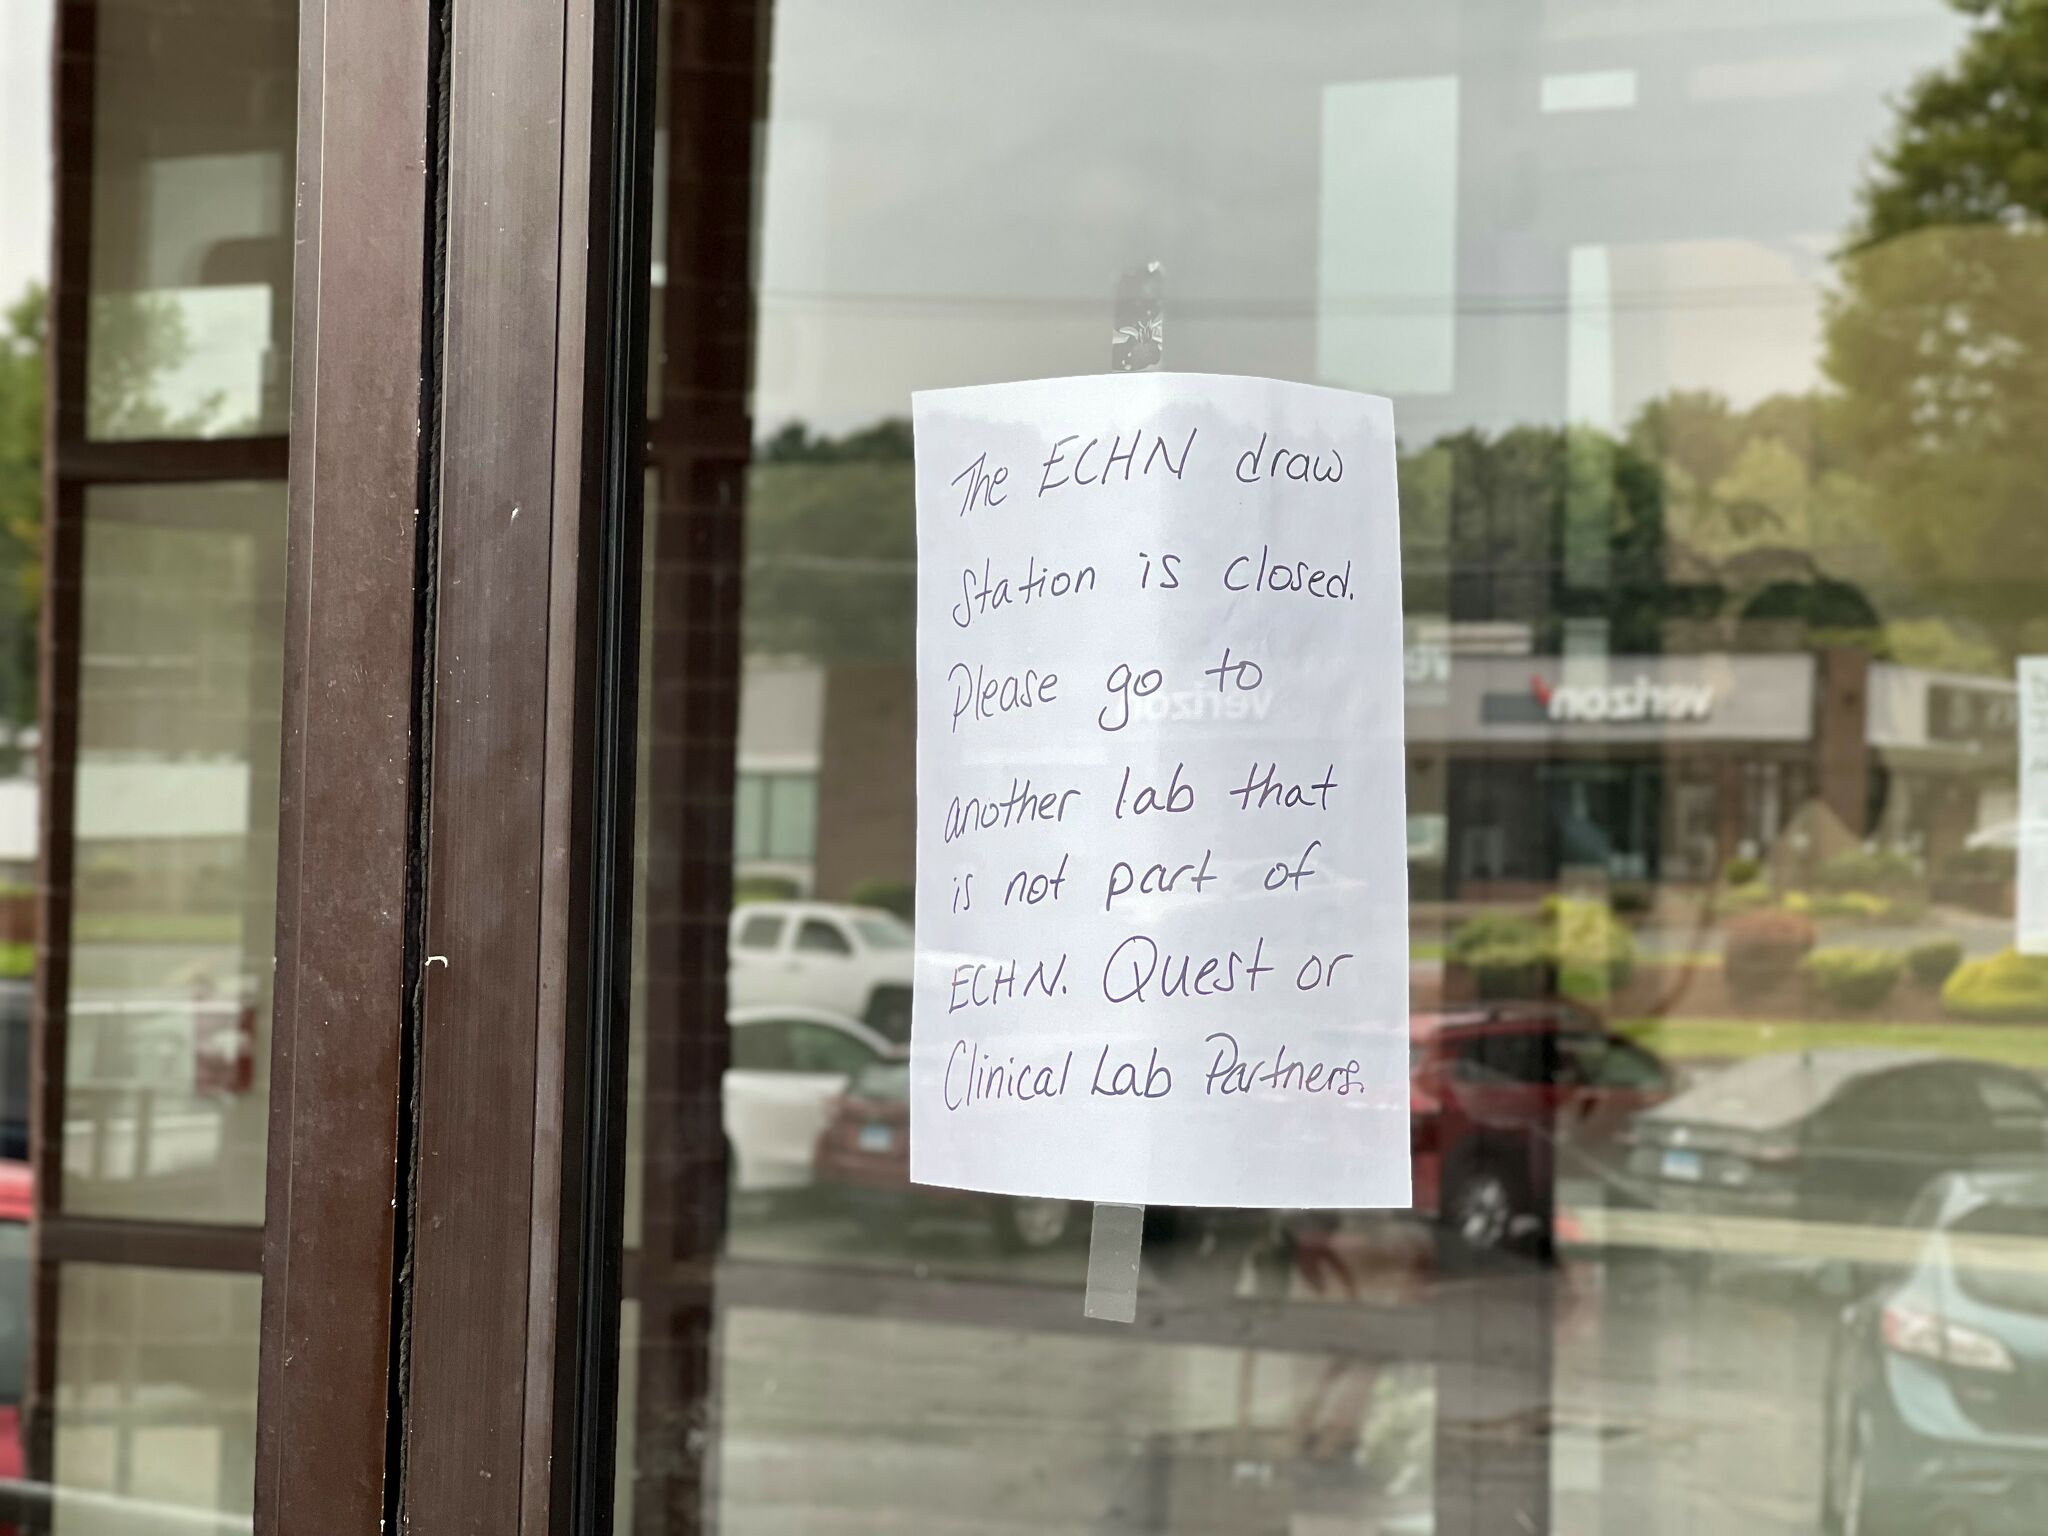 The ECHN draw
Station is closed.
Please go to
another lab that
is not part of
ECHN. Quest or
Clinical Lab Partners.
verizon
verizon